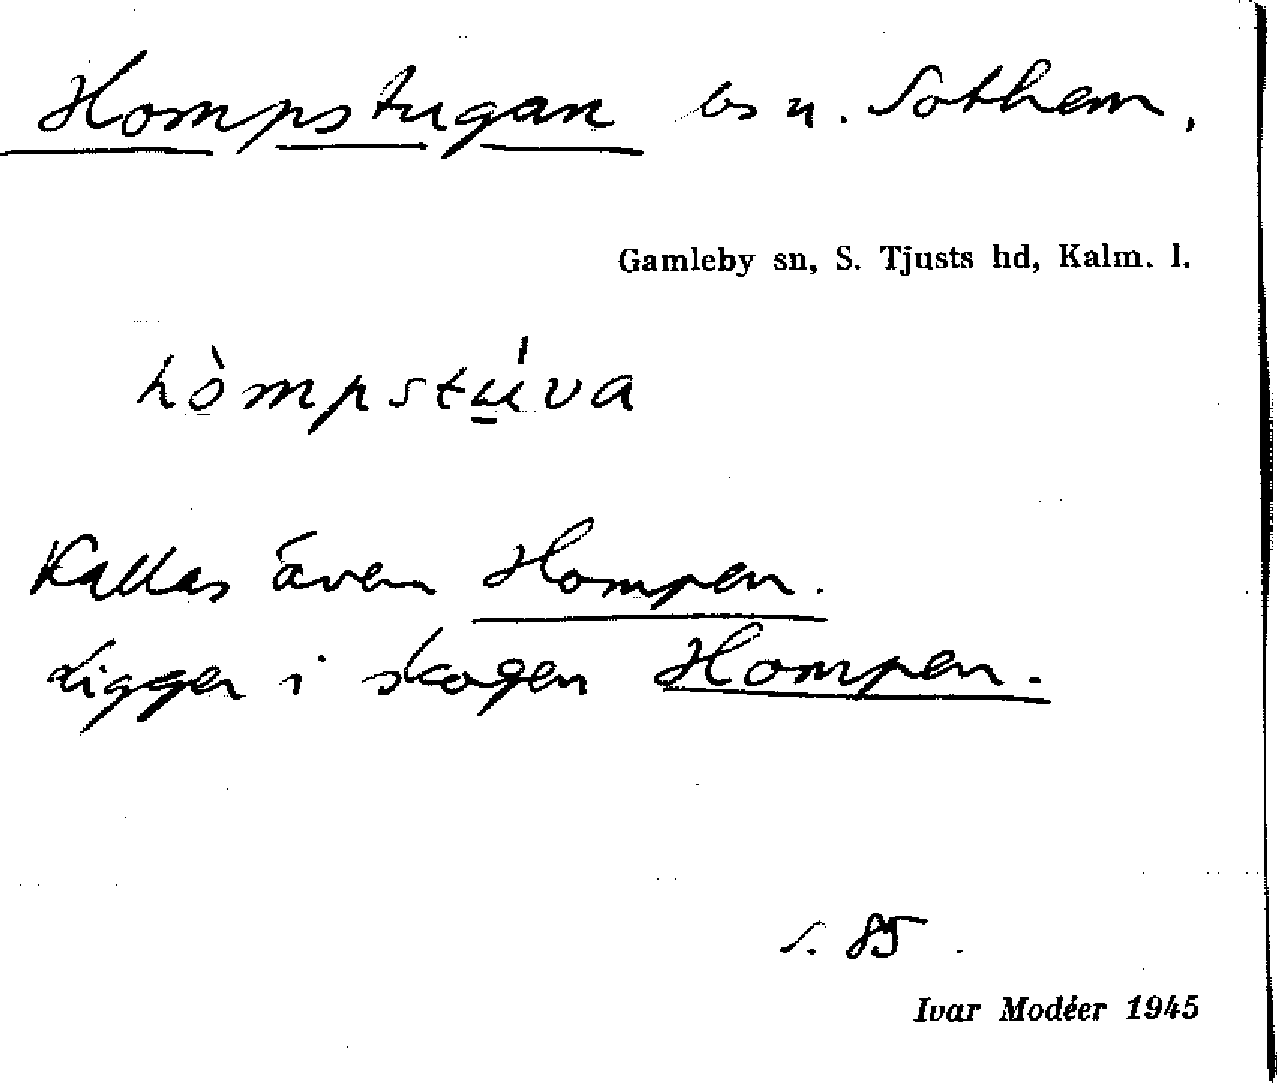 Hompstugan bs u. Sothem,
Gamleby sn, S. Tjusts hd, Kalm. l.
hòmpstú̠va
Kallas även Hompen.
Ligger i skogen Hompen.
s. 85.
Ivar Modéer 1945